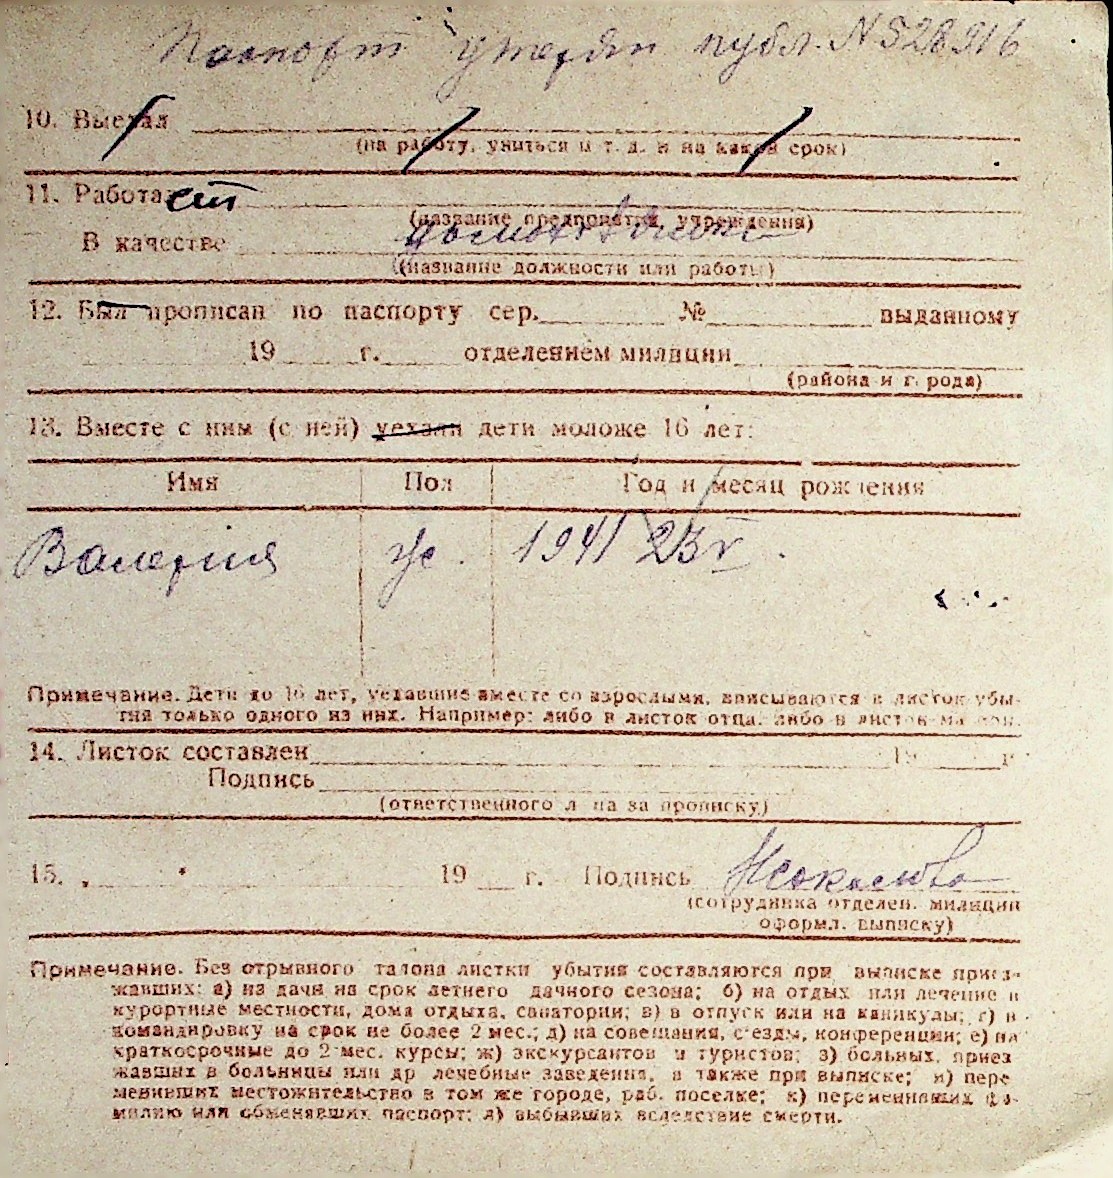 Паспорт утерян публ. N 528916
10. Выехал
(на работу, учиться и т. д. и на какой срок)
11. Работает
(название предприятия, учреждения)
В качестве
(название должности или работы)
12. Был прописан по паспорту сер. № выданному
19 г. отделением милиции
(района и города)
13. Вместе с ним (с ней) уехали дети моложе 16 лет:
Имя Пол Год и месяц рождения
Валерия ж. 1941 23 V
Примечание. Дети до 16 лет, уехавшие вместе со взрослыми, вписываются в листок убы-
тия только одного из них. Например: либо в листок отца, либо в листок матери.
14. Листок составлен 19 г.
Подпись
(ответственного лица за прописку)
15. „ " 19 г. Подпись
(сотрудника отделен. милиции
оформл. выписку)
Примечание. Без отрывного талона листки убытия составляются при выписке приез-
жавших: а) на дачи на срок летнего дачного сезона; б) на отдых или лечение в
курортные местности, дома отдыха, санатории; в) в отпуск или на каникулы; г) в
командировку на срок не более 2 мес.; д) на совещания, съезды, конференции; е) на
краткосрочные до 2 мес. курсы; ж) экскурсантов и туристов; з) больных, приез
жавших в больницы или др лечебные заведения, а также при выписке; и) пере
менивших местожительство в том же городе, раб. поселке; к) переменивших фа-
милию или обменявших паспорт; л) выбывших вследствие смерти.